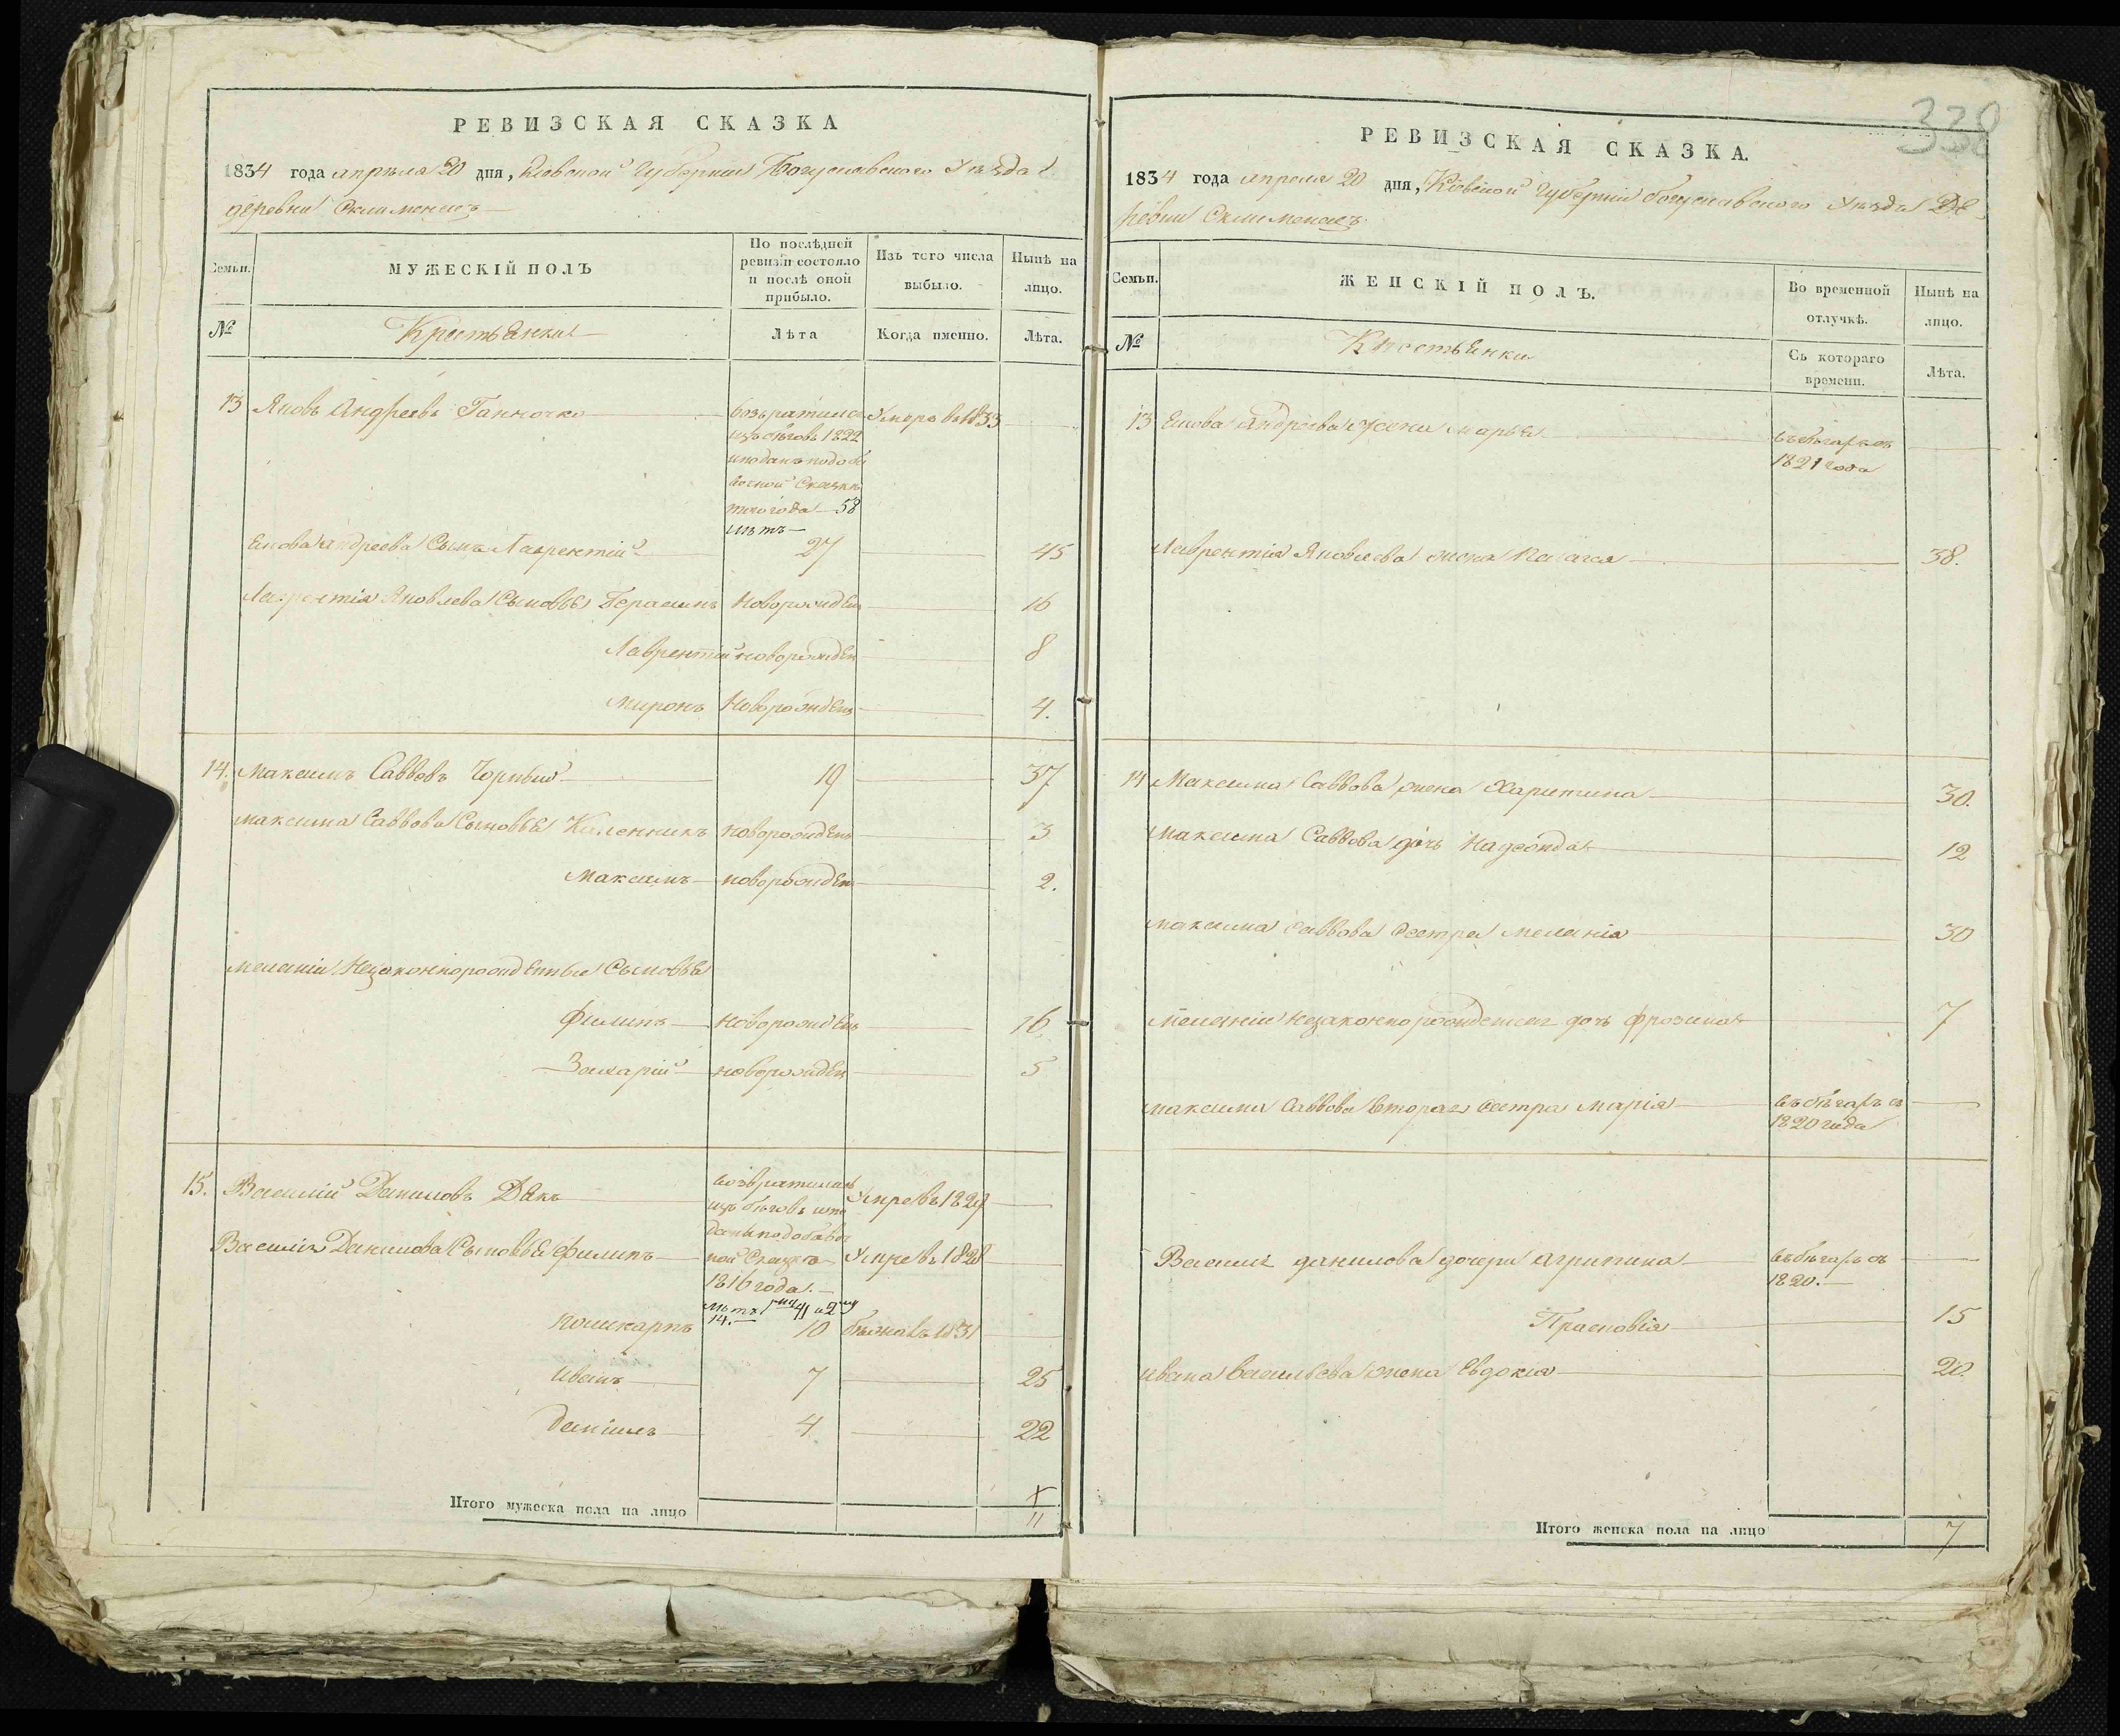 РЕВИЗСКАЯ СКАЗКА
1834 года апреля 20 дня, Киевской Губернии Богуславского Уезда
деревни Склименецъ
Семьи.
МУЖЕСКІЙ ПОЛЪ
По послѣдней ревизіи состояло и послѣ оной прибыло.
Изъ того числа выбыло.
Нынѣ на лицо.
№
Крестьяне
Лѣта
Когда именно.
Лѣта.
13 Яковъ Андреевъ
возвратился Умеръ въ 1833
изъ бѣговъ 1822
и поданъ по доба
вочной Сказкѣ
того года 58
лѣтъ
Екова Андреева Сынъ Лаврентій 27 45
Лаврентія Яковлева Сыновья Герасимъ Новорожден 16
Лаврентій новорожден 8
Миронъ Новорожден 4.
14. Максимъ Саввовъ Чорный 19 37
Максима Саввова Сыновья Каленникъ новорожден 3
Максимъ новорожден 2.
Меланіи Незаконнорожденные Сыновья
Филипъ новорожден 16
Захарій новорожден 5
15. Василій Даниловъ Дякъ
возвратились Умре въ 1829
изъ бѣговъ и по
Василія Данилова Сыновья Филипъ
даны по добавоч
ной Сказкѣ Умре въ 1828
1816 года.
лѣтъ 1й 41 и 2й
14.
Поликарпъ 10 бѣжавъ 1831
Иванъ 7 25
Даніилъ 4 22
Итого мужеска пола на лицо 11
338
РЕВИЗСКАЯ СКАЗКА.
1834 года апреля 20 дня, Кіевской Губерніи богуславского Уезда Де-
ревни Склименецъ
Семьи.
ЖЕНСКІЙ ПОЛЪ.
Во временной отлучкѣ.
Нынѣ на лицо.
№
Крестьянки
Съ котораго времени.
Лѣта.
13 Екова Андреева жена Марья въ бѣгахъ съ
1821 года
Лаврентія Яковлева жена Палагея 38.
14 Максима Саввова жена Харитина 30.
Максима Саввова дочь Надежда 12
Максима Саввова Сестра Меланія 30
Меланіи незаконнорожденная дочь Фросина 7
Максима Саввова вторая Сестра Марія въ бѣгахъ съ
1820 года
Василія данилова дочери Агрипина въ бѣгахъ съ
1820.
Прасковія 15
Ивана Васильева жена Евдокія 20.
Итого женска пола на лицо 7